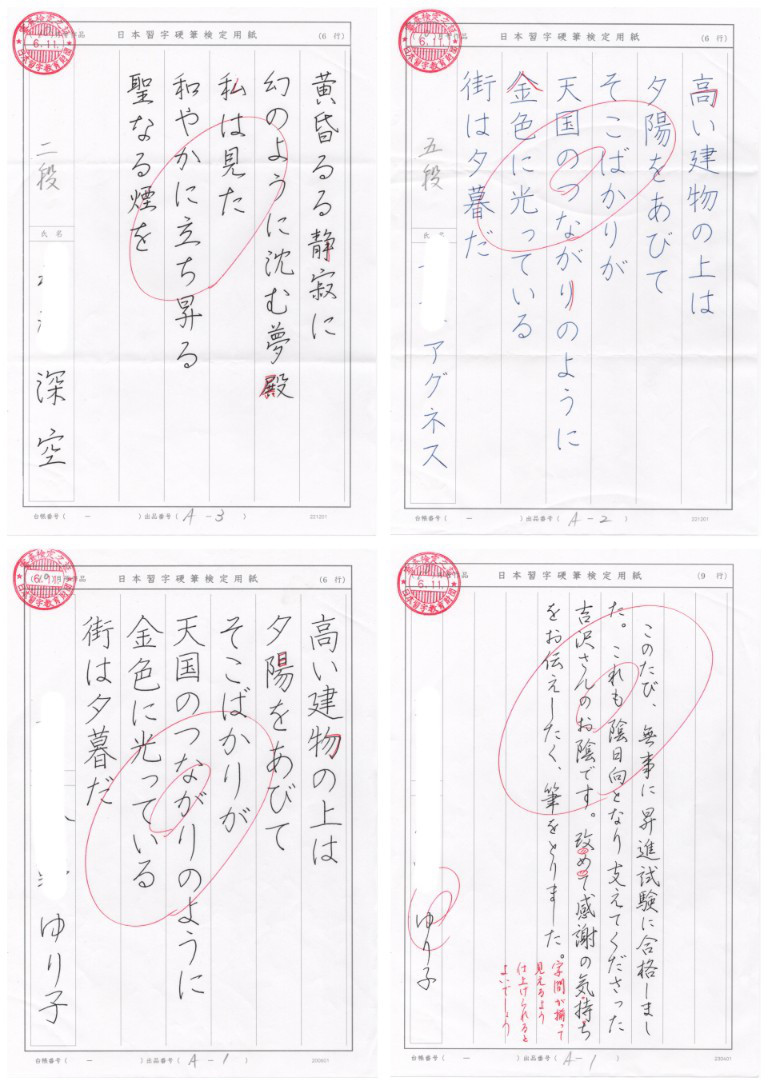 日本習字硬筆検定用紙
(6 行)
6.11.
日本習字教育財団
黄昏るる静寂に
幻のように沈む夢殿
私は見た
和やかに立ち昇る
聖なる煙を
二段
氏 名
深空
台帳番号( － )出品番号( A-3 )
221201
日本習字硬筆検定用紙
(6 行)
6.11.
日本習字教育財団
高い建物の上は
夕陽をあびて
そこばかりが
天国のつながりのように
金色に光っている
街は夕暮だ
五段
氏 名
アグネス
台帳番号( － )出品番号( A-2 )
221201
日本習字硬筆検定用紙
(6 行)
日本習字教育財団
高い建物の上は
夕陽をあびて
そこばかりが
天国のつながりのように
金色に光っている
街は夕暮だ
ゆり子
台帳番号( － )出品番号( A-1 )
日本習字硬筆検定用紙
(9 行)
6.11.
日本習字教育財団
このたび、無事に昇進試験に合格しまし
た。これも陰日向となり支えてくださった
吉沢さんのお陰です。改めて感謝の気持ち
をお伝えしたく、筆をとりました。
字間が揃って
見えるよう
仕上げられると
よいでしょう
ゆり子
台帳番号( － )出品番号( A-1 )